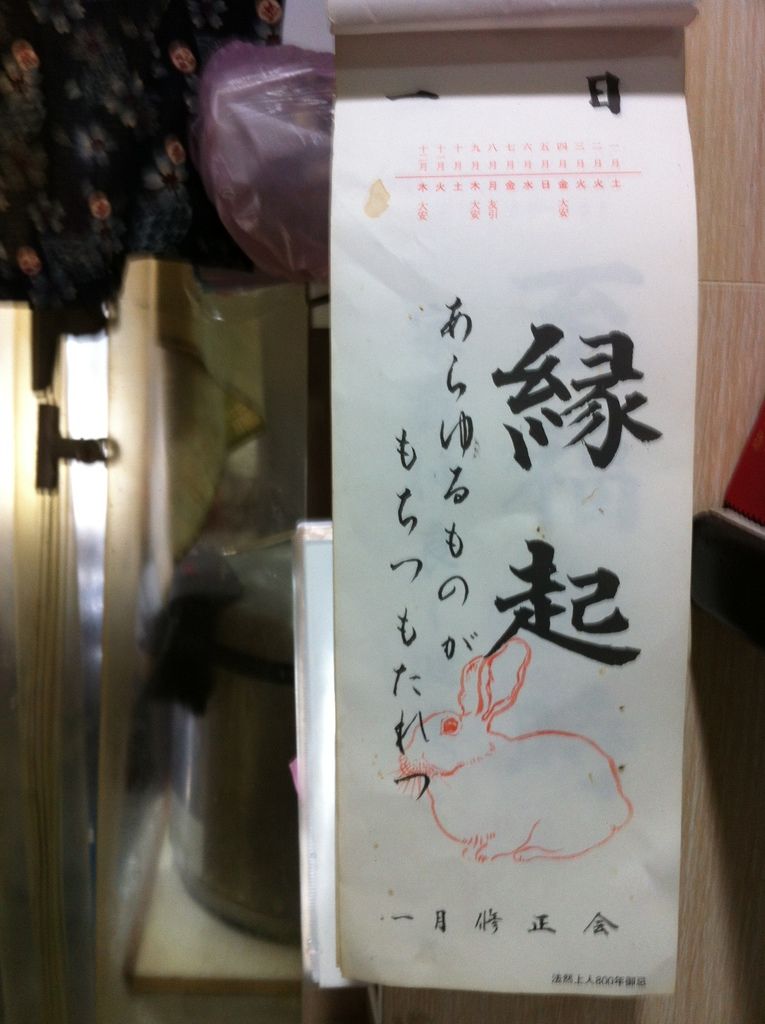 日 一
一月 二月 三月 四月 五月 六月 七月 八月 九月 十月 十一月 十二月
土 火 火 金 日 水 金 月 木 土 火 木
大安 友引 大安 大安
縁起
あらゆるものが
もちつもたれつ
一月修正会
法然上人800年御忌